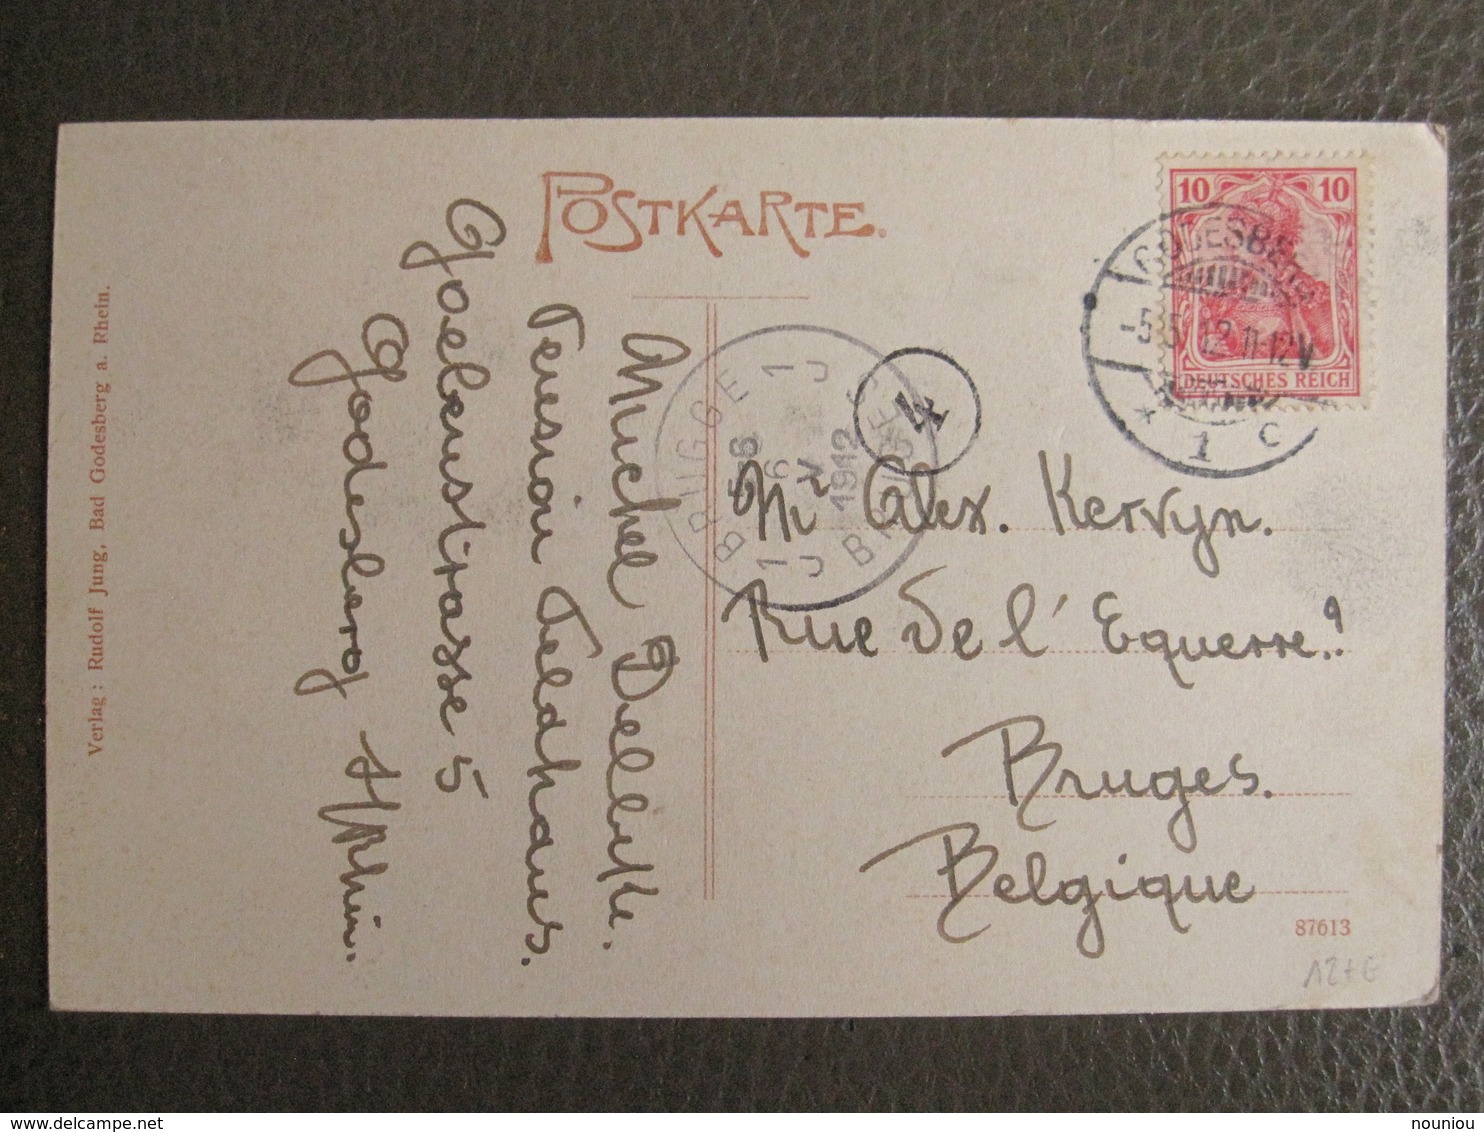 POSTKARTE.
10 10
DEUTSCHES REICH
GODESBERG
-5.5.12.11-12V
* 1 c
BRUGGE 1 J
5-6
6
V
1912
1 J BRUGES
4
Mr Alex. Kervyn.
Rue de l'Equerre. 9
Bruges.
Belgique
87613
Michel
Pension Feldhaus.
Goebenstrasse 5
Godesberg a/Rhin.
Verlag: Rudolf Jung, Bad Godesberg a. Rhein.
nouniou